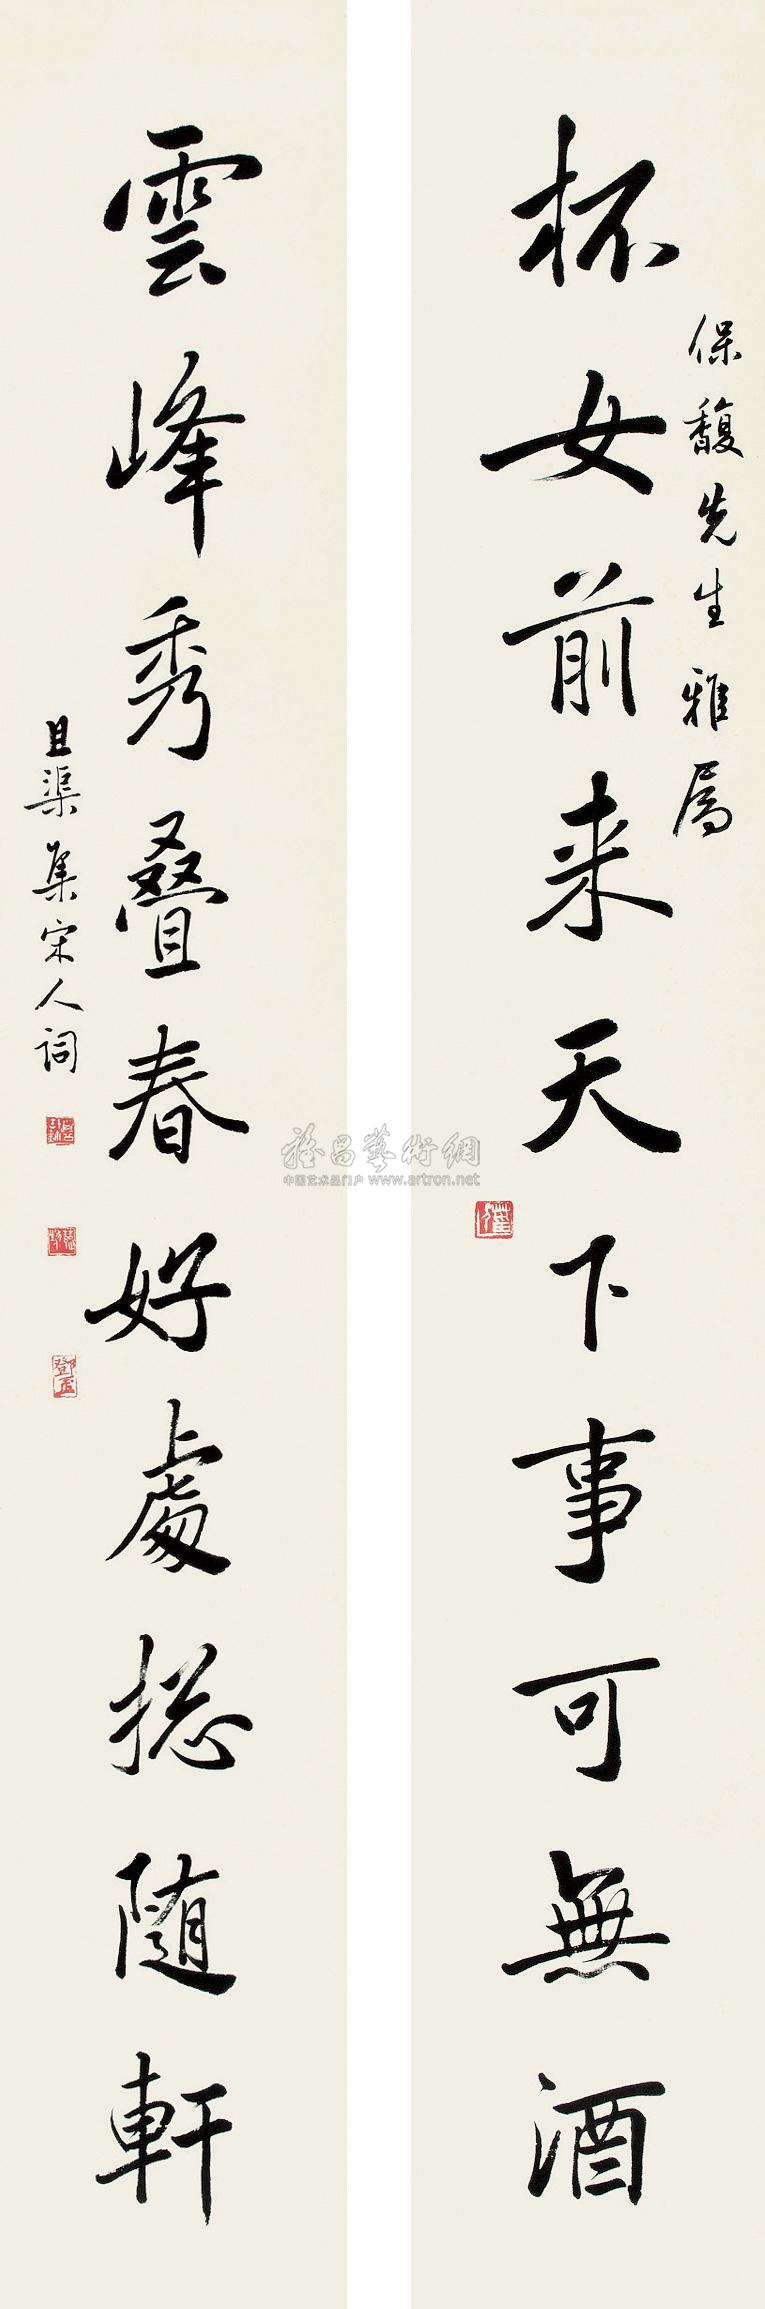 杯女前来天下事可無酒
保馥先生雅属
雲峰秀叠春好處揔随軒
且渠集宋人词
雅昌藝術網
中国艺术品门户 www.artron.net